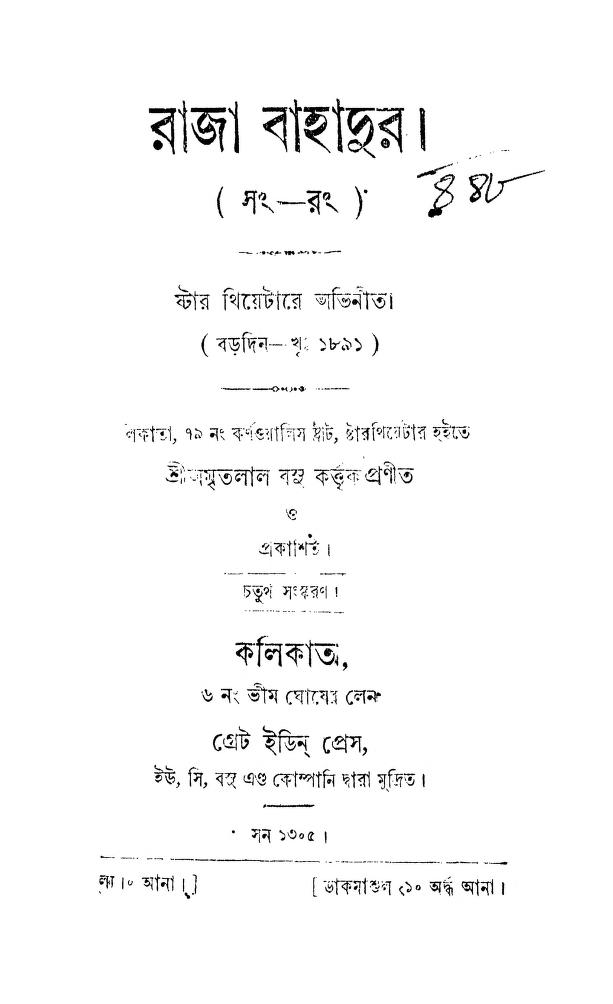 রাজা বাহাদুর।
( সং—রং )
৪৪৮
ষ্টার থিয়েটারে অভিনীত।
( বড়দিন—খৃঃ ১৮৯১ )
লকাতা, ৭৯ নং কর্ণওয়ালিস ষ্ট্রীট, ষ্টারথিয়েটার হইতে
শ্রীঅমৃতলাল বসু কর্ত্তৃক প্রণীত
ও
প্রকাশিত।
চতুর্থ সংস্করণ।
কলিকাতা,
৬ নং ভীম ঘোষের লেন
গ্রেট ইডিন্ প্রেস,
ইউ, সি, বসু এণ্ড কোম্পানি দ্বারা মুদ্রিত।
সন ১৩০৫।
ল্য ।০ আনা। ] [ ডাকমাশুল ৴১০ অর্দ্ধ আনা।